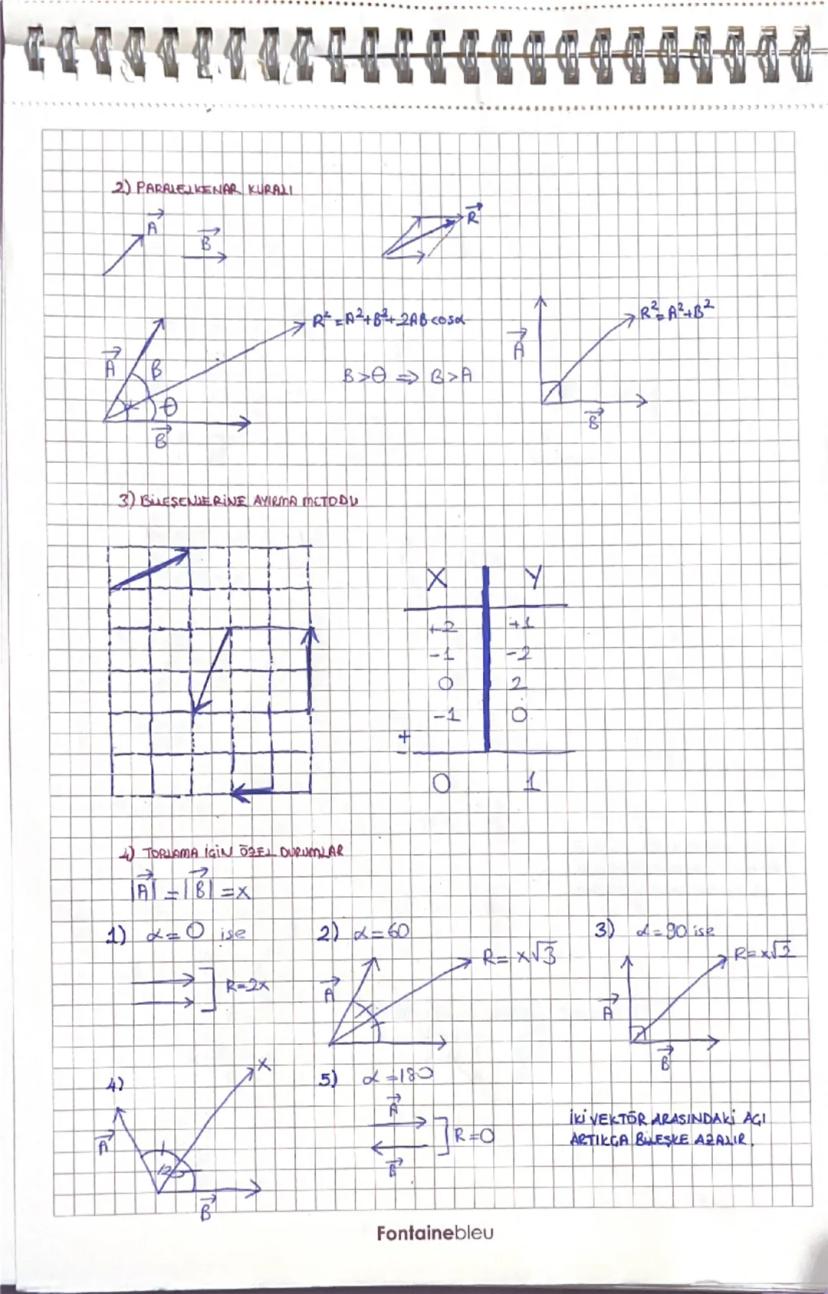 2) PARALELKENAR KURALI
A B R
R²=A²+B²+2ABcosα
R²=A²+B²
A β α θ B
β>θ ⇒ B>A
A B
3) BİLEŞENLERİNE AYIRMA METODU
X Y
+2 +1
-1 -2
0 2
-1 0
+
0 1
4) TOPLAMA İÇİN ÖZEL DURUMLAR
|A| = |B| = x
1) α=0 ise
2) α=60
3) α=90 ise
R=2x
A R=x√3
A B R=x√2
4)
A B x
5) α=180
A
B
R=0
İKİ VEKTÖR ARASINDAKİ AÇI
ARTIKÇA BİLEŞKE AZALIR.
Fontainebleu